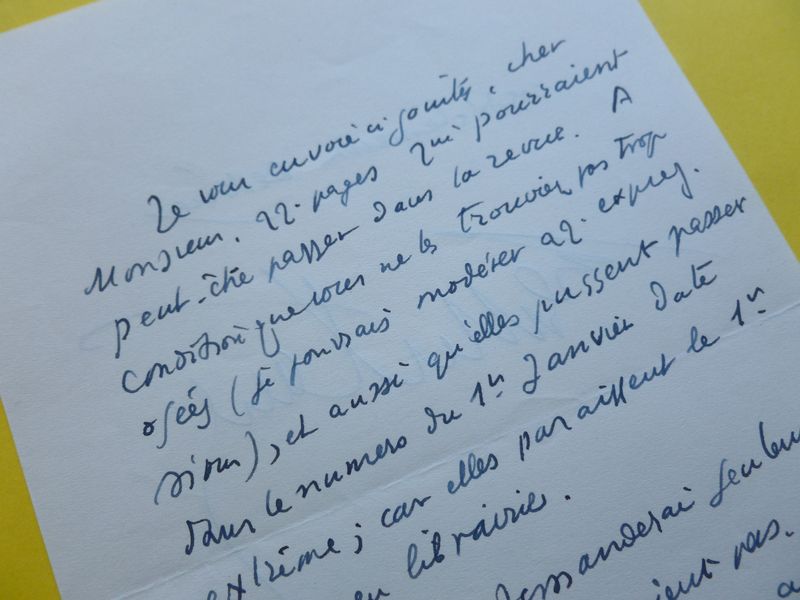 Je vous envoie ci-joints, cher
Monsieur, qq. pages qui pourraient
peut-être passer dans la revue. A
condition que vous ne les trouviez pas trop
osées (je pourrais modérer qq. expres-
sions), et aussi qu'elles pussent passer
dans le numéro du 1er Janvier date
extrême; car elles paraissent le 1er
en librairie.
demanderai seulem
ient pas.